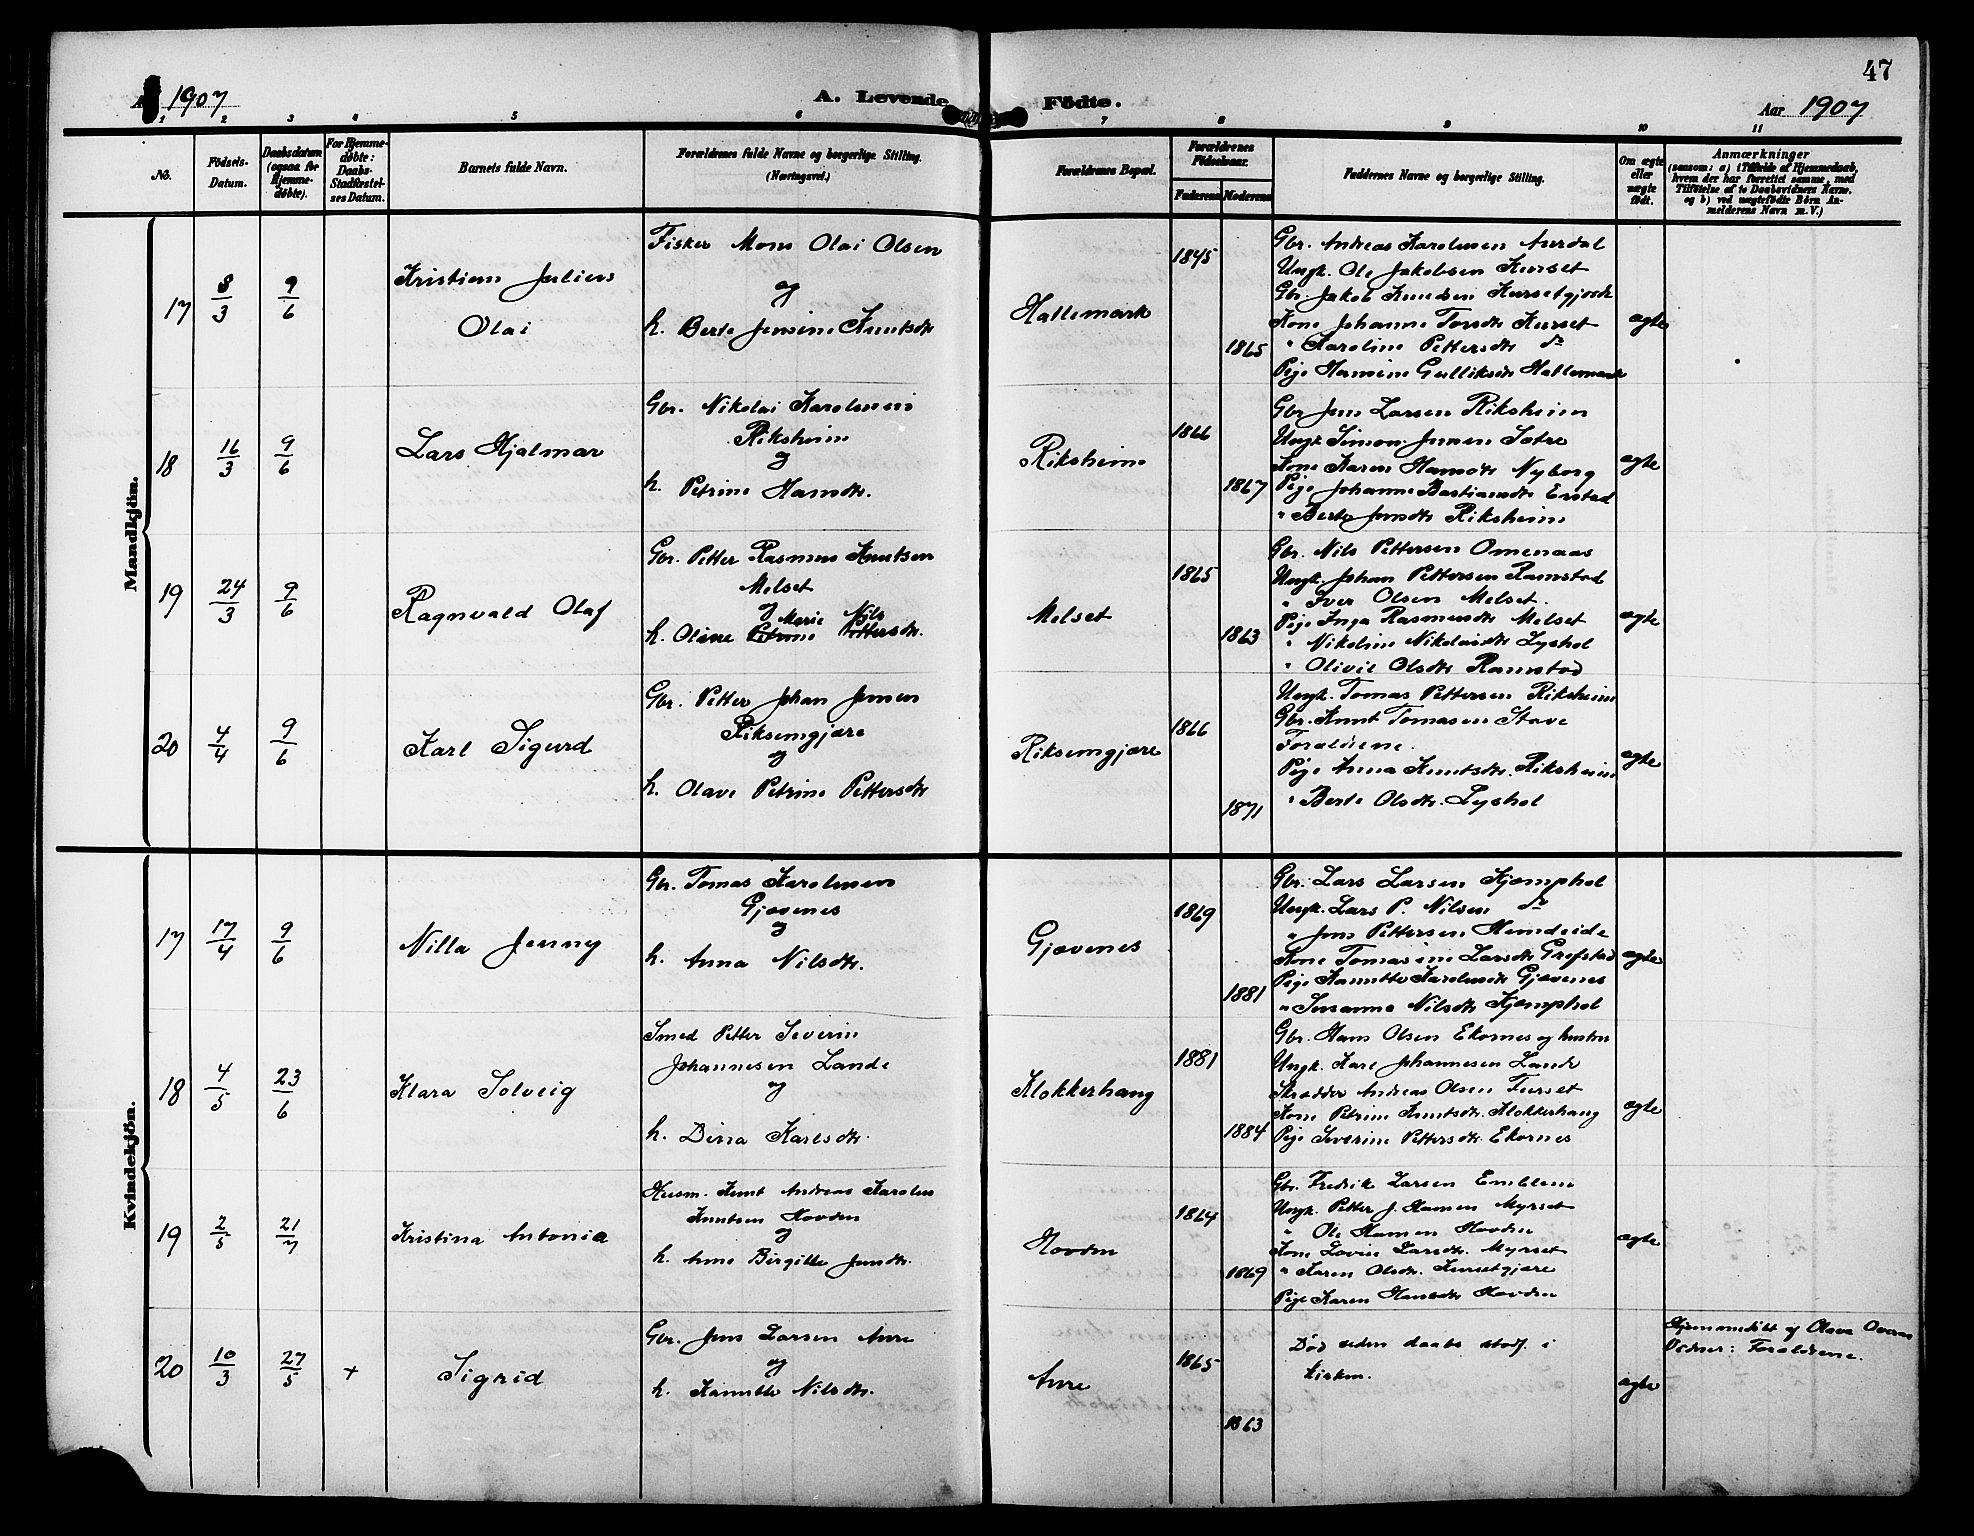 47
1907 A. Levende Födte. Aar 1907
1 2 3 4 5 6 7 8 9 10 11
No.
Födsels-
Datum.
Daabsdatum
(ogsaa for
Hjemme-
døbte).
For Hjemme-
døbte:
Daabs-
Stadfæstel-
ses Datum.
Barnets fulde Navn.
Forældrenes fulde Navne og borgerlige Stilling.
(Næringsvei.)
Forældrenes Bopæl.
Forældrenes
Födselsaar.
Faderens Moderens
Faddernes Navne og borgerlige Stilling.
Om ægte
eller
uægte
født.
Anmærkninger
(saasom: a) i Tilfælde af Hjemmedaab,
hvem der har forrettet samme, med
Tilföielse af to Daabsvidners Navne.
og b) ved uægtefödte Börn An-
melderens Navn m. V.)
Mandkjön.
17
8/3
9/6
Kristian Julius
Olai
Fisker Mons Olai Olsen
og
h. Berte Jensine Knutsdtr
Hallemark
1845
1865
Gbr. Andreas Karolusen Aurdal
Ungk. Ole Jakobsen Kurset
Gbr. Jakob Knudsen Kursetgjærde
Kone Johanne Torsdtr Kurset
" Karoline Pettersdtr do
Pige Hansine Gulliksdtr Hallemark
ægte
18
16/3
9/6
Lars Hjalmar
Gbr. Nikolai Karolusen
Riksheim
og
h. Petrine Hansdtr.
Riksheim
1866
1867
Gbr Jens Larsen Riksheim
Ungk. Simon Jensen Sætre
Kone Karen Hansdtr Nyborg
Pige Johanne Bastiansdtr Erstad
" Berte Jensdtr Riksheim
ægte
19
24/3
9/6
Ragnvald Olaf
Gbr. Petter Rasmus Knutsen
Melset
og Marie Nils
h. Oline Petrine Pettersdtr.
Melset
1865
1863
Gbr. Nils Pettersen Omenaas
Ungk. Johan Pettersen Ramstad
" Iver Olsen Melset.
Pige Inga Rasmusdtr Melset
" Nikoline Nikolaisdtr Lyshol
" Olivie Olsdtr Ramstad
ægte
20
4/4
9/6
Karl Sigurd
Gbr. Petter Johan Jensen
Riksemgjære
og
h. Olave Petrine Pettersdtr
Riksemgjære
1866
1871
Ungk. Tomas Pettersen Riksheim
Gbr. Knut Tomasen Stave
Forældrene.
Pige Anna Knutsdtr. Riksheim
" Berte Olsdtr. Lyshol
ægte
Kvindekjön.
17
17/4
9/6
Nilla Jenny
Gbr. Tomas Karolusen
Gjævenes
og
h. Anna Nilsdtr.
Gjævenes
1869
1881
Gbr. Lars Larsen Kjæmphol
Ungk. Lars P. Nilsen do
" Jens Pettersen Hundeide
Kone Tomasine Larsdtr Grefstad
Pige Hanutte Karolusdtr Gjævenes
" Susanna Nilsdtr Kjæmphol
ægte
18
4/5
23/6
Klara Solveig
Smed Petter Severin
Johannesen Lande
og
h. Dina Karlsdtr.
Klokkerhaug
1881
1884
Gbr. Hans Olsen Ekornes og hustru
Ungk. Karl Johannesen Lande
Skrædder Andreas Olsen Furset
Kone Petrine Knutsdtr. Klokkerhaug
Pige Severine Pettersdtr. Ekornes
ægte
19
2/5
21/7
Kristina Antonia
Husm. Knut Andreas Karolus
Knutsen Hovden
og
h. Anne Birgitte Jensdtr.
Hovden
1864
1869
Gbr. Fredrik Larsen Emblem
Ungk. Petter J. Hansen Myrset
" Ole Hansen Hovden
Kone Lovise Larsdtr. Myrset
" Karen Olsdtr. Kursetgjære
Pige Karen Hansdtr Hovden
ægte
20
10/3
27/5
+
Sigrid
Gbr. Jens Larsen Aure
og
h. Hanutte Nilsdtr.
Aure
1865
1863
Död uden daabs stadf. i
kirken.
ægte
Hjemmedöbt af Olave Overaa
Vidner: Forældrene.